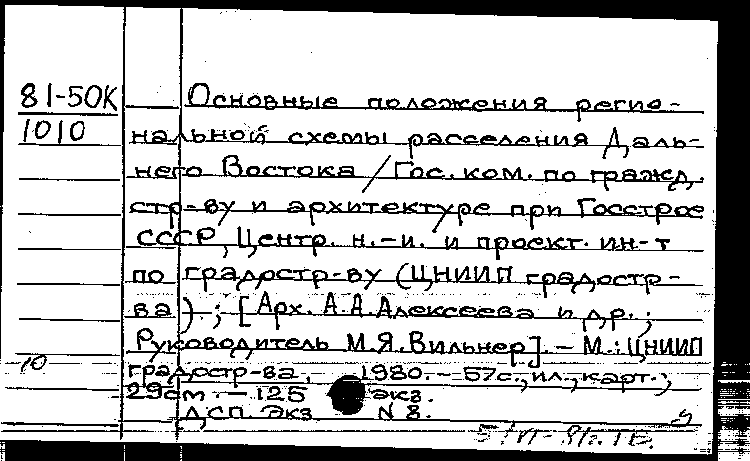 81-50К
1010
Основные положения регио-
нальной схемы расселения Даль-
него Востока / Гос. ком. по гражд.
стр-ву и архитектуре при Госстрое
СССР, Центр. н.-и. и проект. ин-т
по градостр-ву (ЦНИИП градостр-
ва).; [Арх. А.А.Алексеева и др.;
Руководитель М.Я.Вильнер]. – М.: ЦНИИП
10
градостр-ва, 1980. – 57с., ил., карт.;
29см. – 125 экз.
ДСП. Экз N 8.